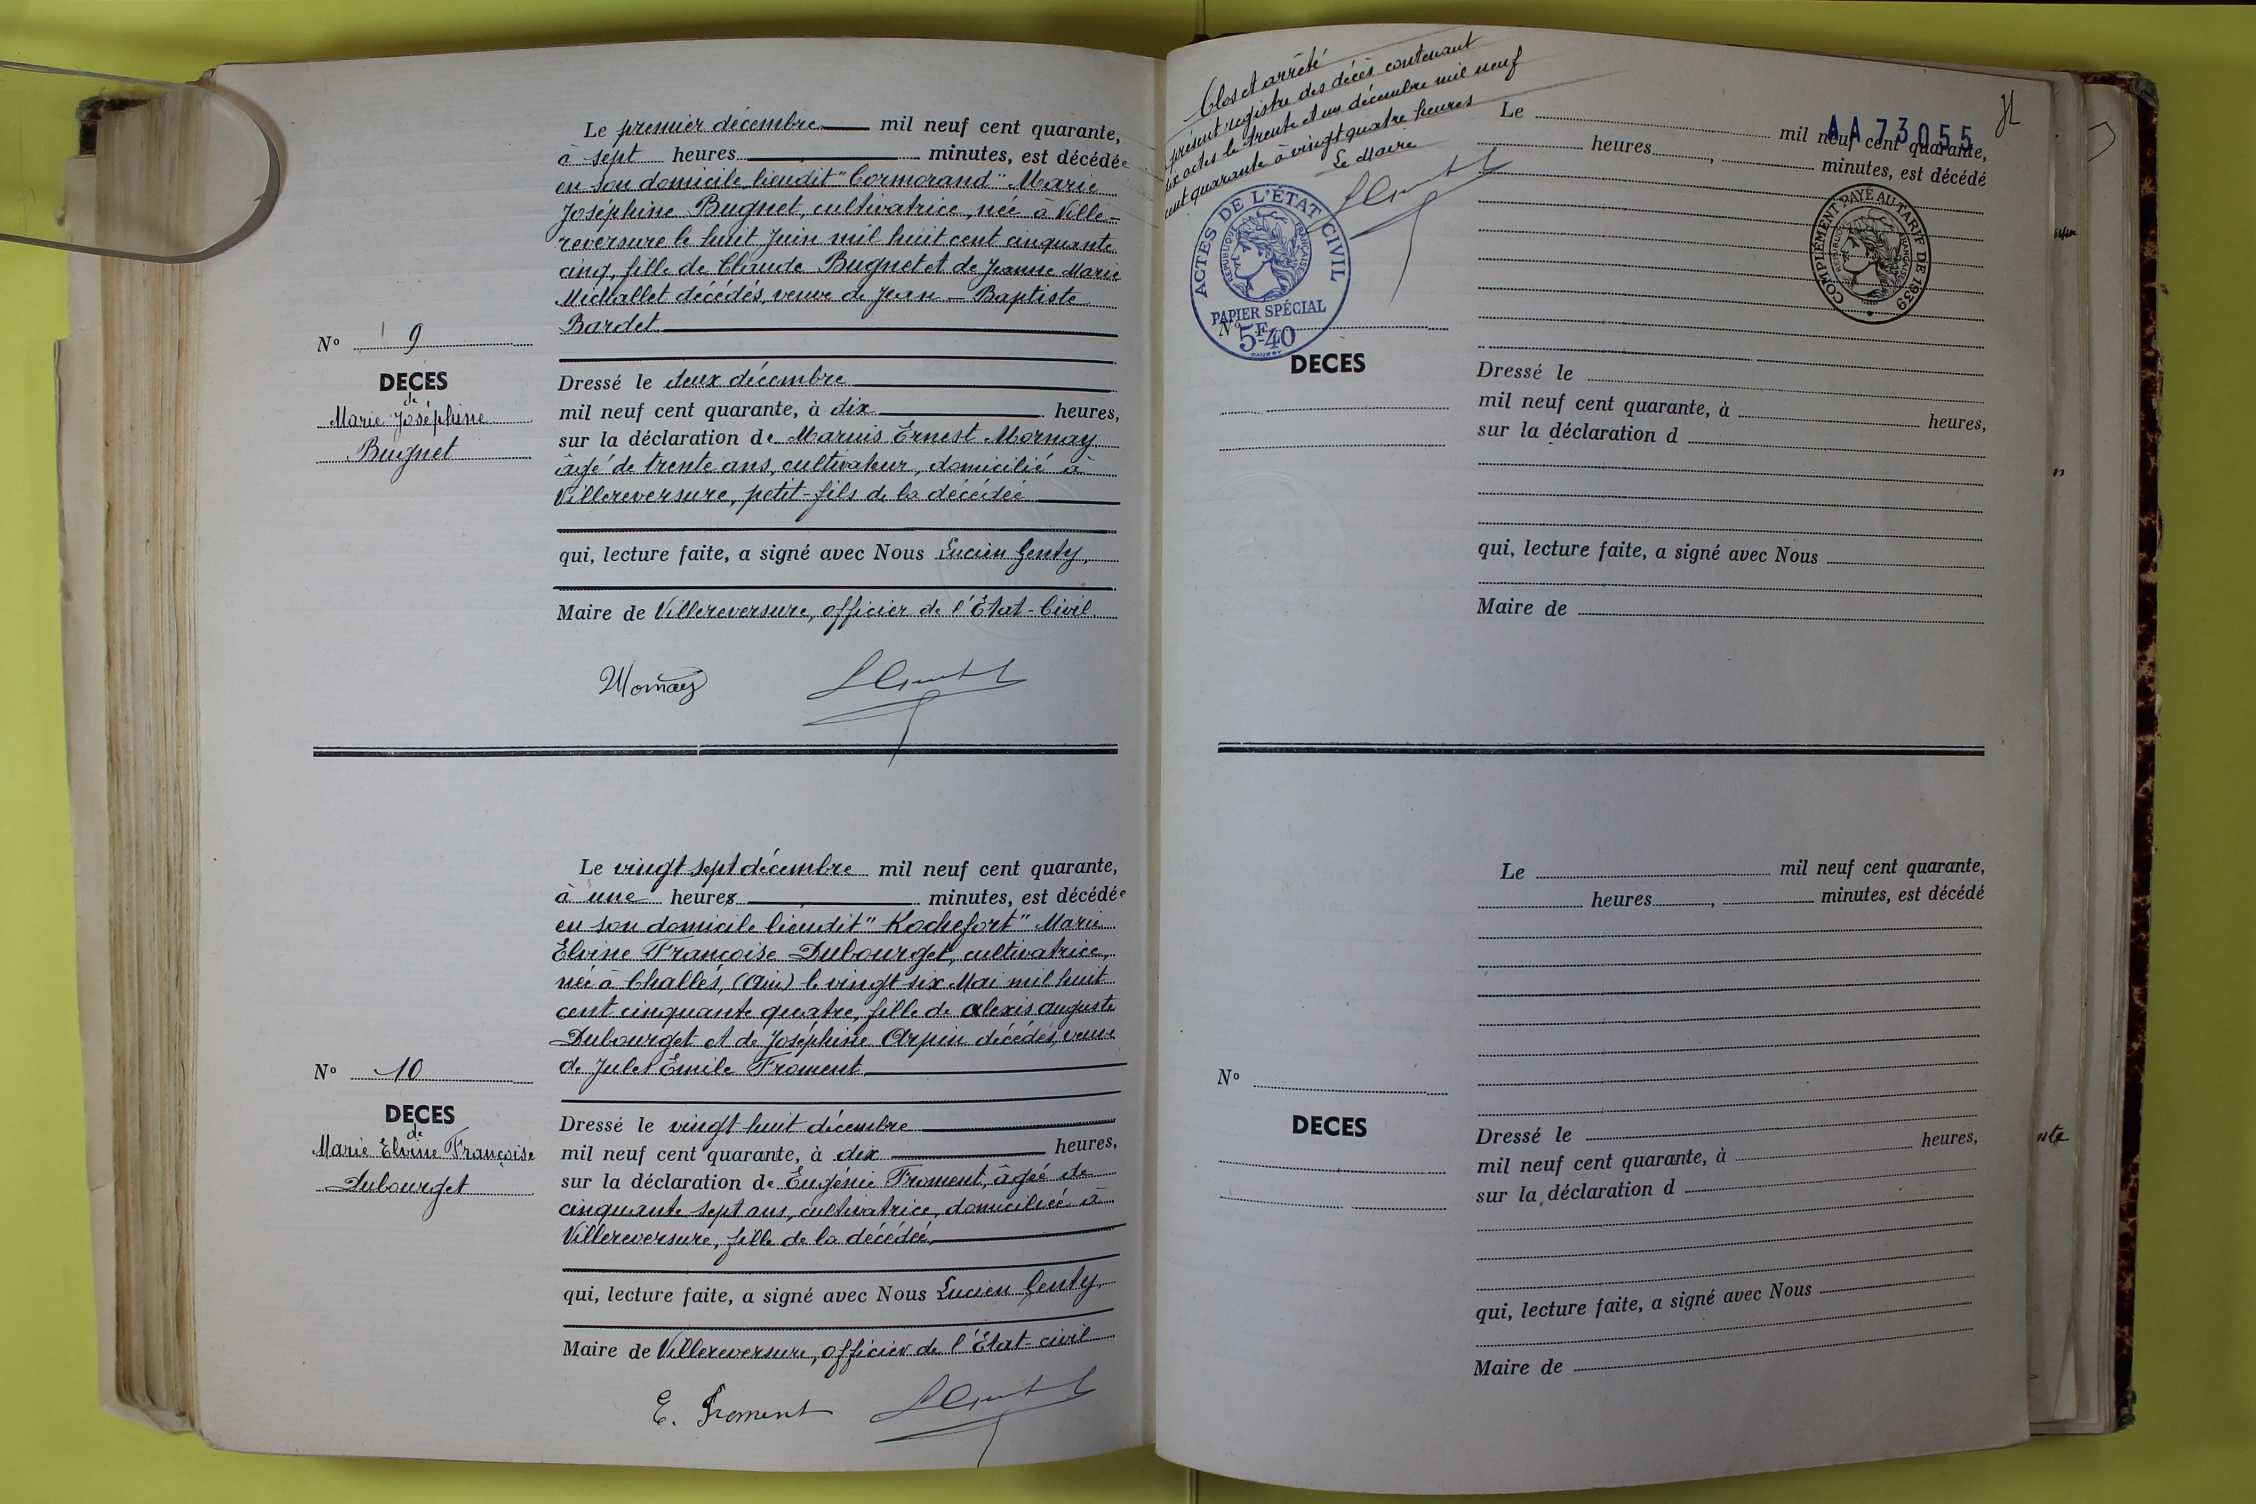 Le premier décembre mil neuf cent quarante,
à sept heures, minutes, est décédée
en son domicile lieudit "Cormorand" Marie
Joséphine Bugnet, cultivatrice, née à Ville-
reversure le huit Juin mil huit cent cinquante
cinq, fille de Claude Bugnet et de Jeanne Marie
Michallet décédés, veuve de Jean-Baptiste
Bardet
N° 9
DECES
de
Marie Joséphine
Bugnet
Dressé le deux décembre
mil neuf cent quarante, à dix heures,
sur la déclaration de Marius Ernest Mornay
âgé de trente ans, cultivateur, domicilié à
Villereversure, petit-fils de la décédée
qui, lecture faite, a signé avec Nous Lucien Genty,
Maire de Villereversure, officier de l'Etat-Civil.
Mornay
Le vingt sept décembre mil neuf cent quarante,
à une heures, minutes, est décédée
en son domicile lieudit "Rochefort" Marie
Elvine Françoise Dubourget, cultivatrice,
née à Challes, (Ain) le vingt six Mai mil huit
cent cinquante quatre, fille de Alexis Auguste
Dubourget et de Joséphine Arpin décédés, veuve
de Jules Emile Froment
N° 10
DECES
de
Marie Elvine Françoise
Dubourget
Dressé le vingt huit décembre
mil neuf cent quarante, à dix heures,
sur la déclaration de Eugénie Froment, âgée de
cinquante sept ans, cultivatrice, domiciliée à
Villereversure, fille de la décédée,
qui, lecture faite, a signé avec Nous Lucien Genty,
Maire de Villereversure, officier de l'Etat-civil
E. Froment
Clos et arrêté
présent registre des décès contenant
actes le trente et un décembre mil neuf
cent quarante à vingt quatre heures
Le Maire
ACTES DE L'ÉTAT CIVIL
RÉPUBLIQUE FRANÇAISE
PAPIER SPÉCIAL
5F40
AA 73055
COMPLÉMENT PAYÉ AU TARIF DE 1939
RÉPUBLIQUE FRANÇAISE
Le mil neuf cent quarante,
heures, minutes, est décédé
N°
DECES
Dressé le
mil neuf cent quarante, à heures,
sur la déclaration d
qui, lecture faite, a signé avec Nous
Maire de
Le mil neuf cent quarante,
heures, minutes, est décédé
N°
DECES
Dressé le
mil neuf cent quarante, à heures,
sur la déclaration d
qui, lecture faite, a signé avec Nous
Maire de